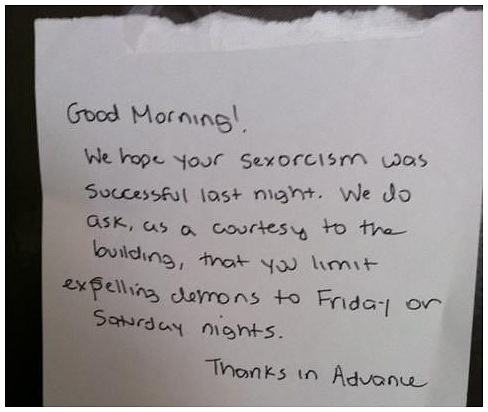 Good Morning!
We hope your sexorcism was
successful last night. We do
ask, as a courtesy to the
building, that you limit
expelling demons to Friday or
Saturday nights.
Thanks in Advance